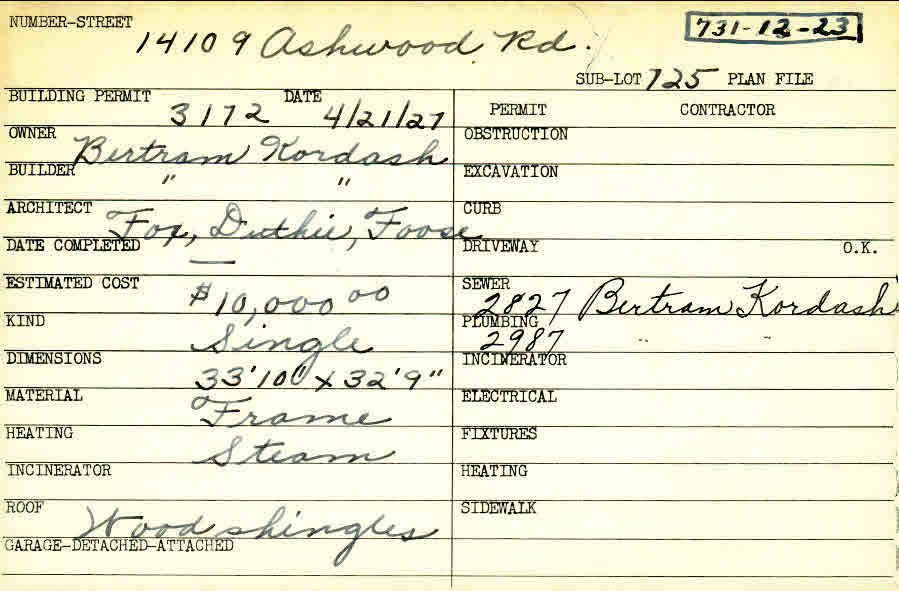 NUMBER-STREET 14109 Ashwood Rd. 731-12-23
SUB-LOT 725 PLAN FILE
BUILDING PERMIT 3172 DATE 4/21/27
PERMIT CONTRACTOR
OWNER Bertram Kordash
OBSTRUCTION
BUILDER " "
EXCAVATION
ARCHITECT Fox, Duthie, Foose
CURB
DATE COMPLETED —
DRIVEWAY O.K.
ESTIMATED COST $10,000 00
SEWER 2827 Bertram Kordash
KIND Single
PLUMBING 2987 " "
DIMENSIONS 33'10" x 32'9"
INCINERATOR
MATERIAL Frame
ELECTRICAL
HEATING Steam
FIXTURES
INCINERATOR
HEATING
ROOF Wood shingles
SIDEWALK
GARAGE-DETACHED-ATTACHED